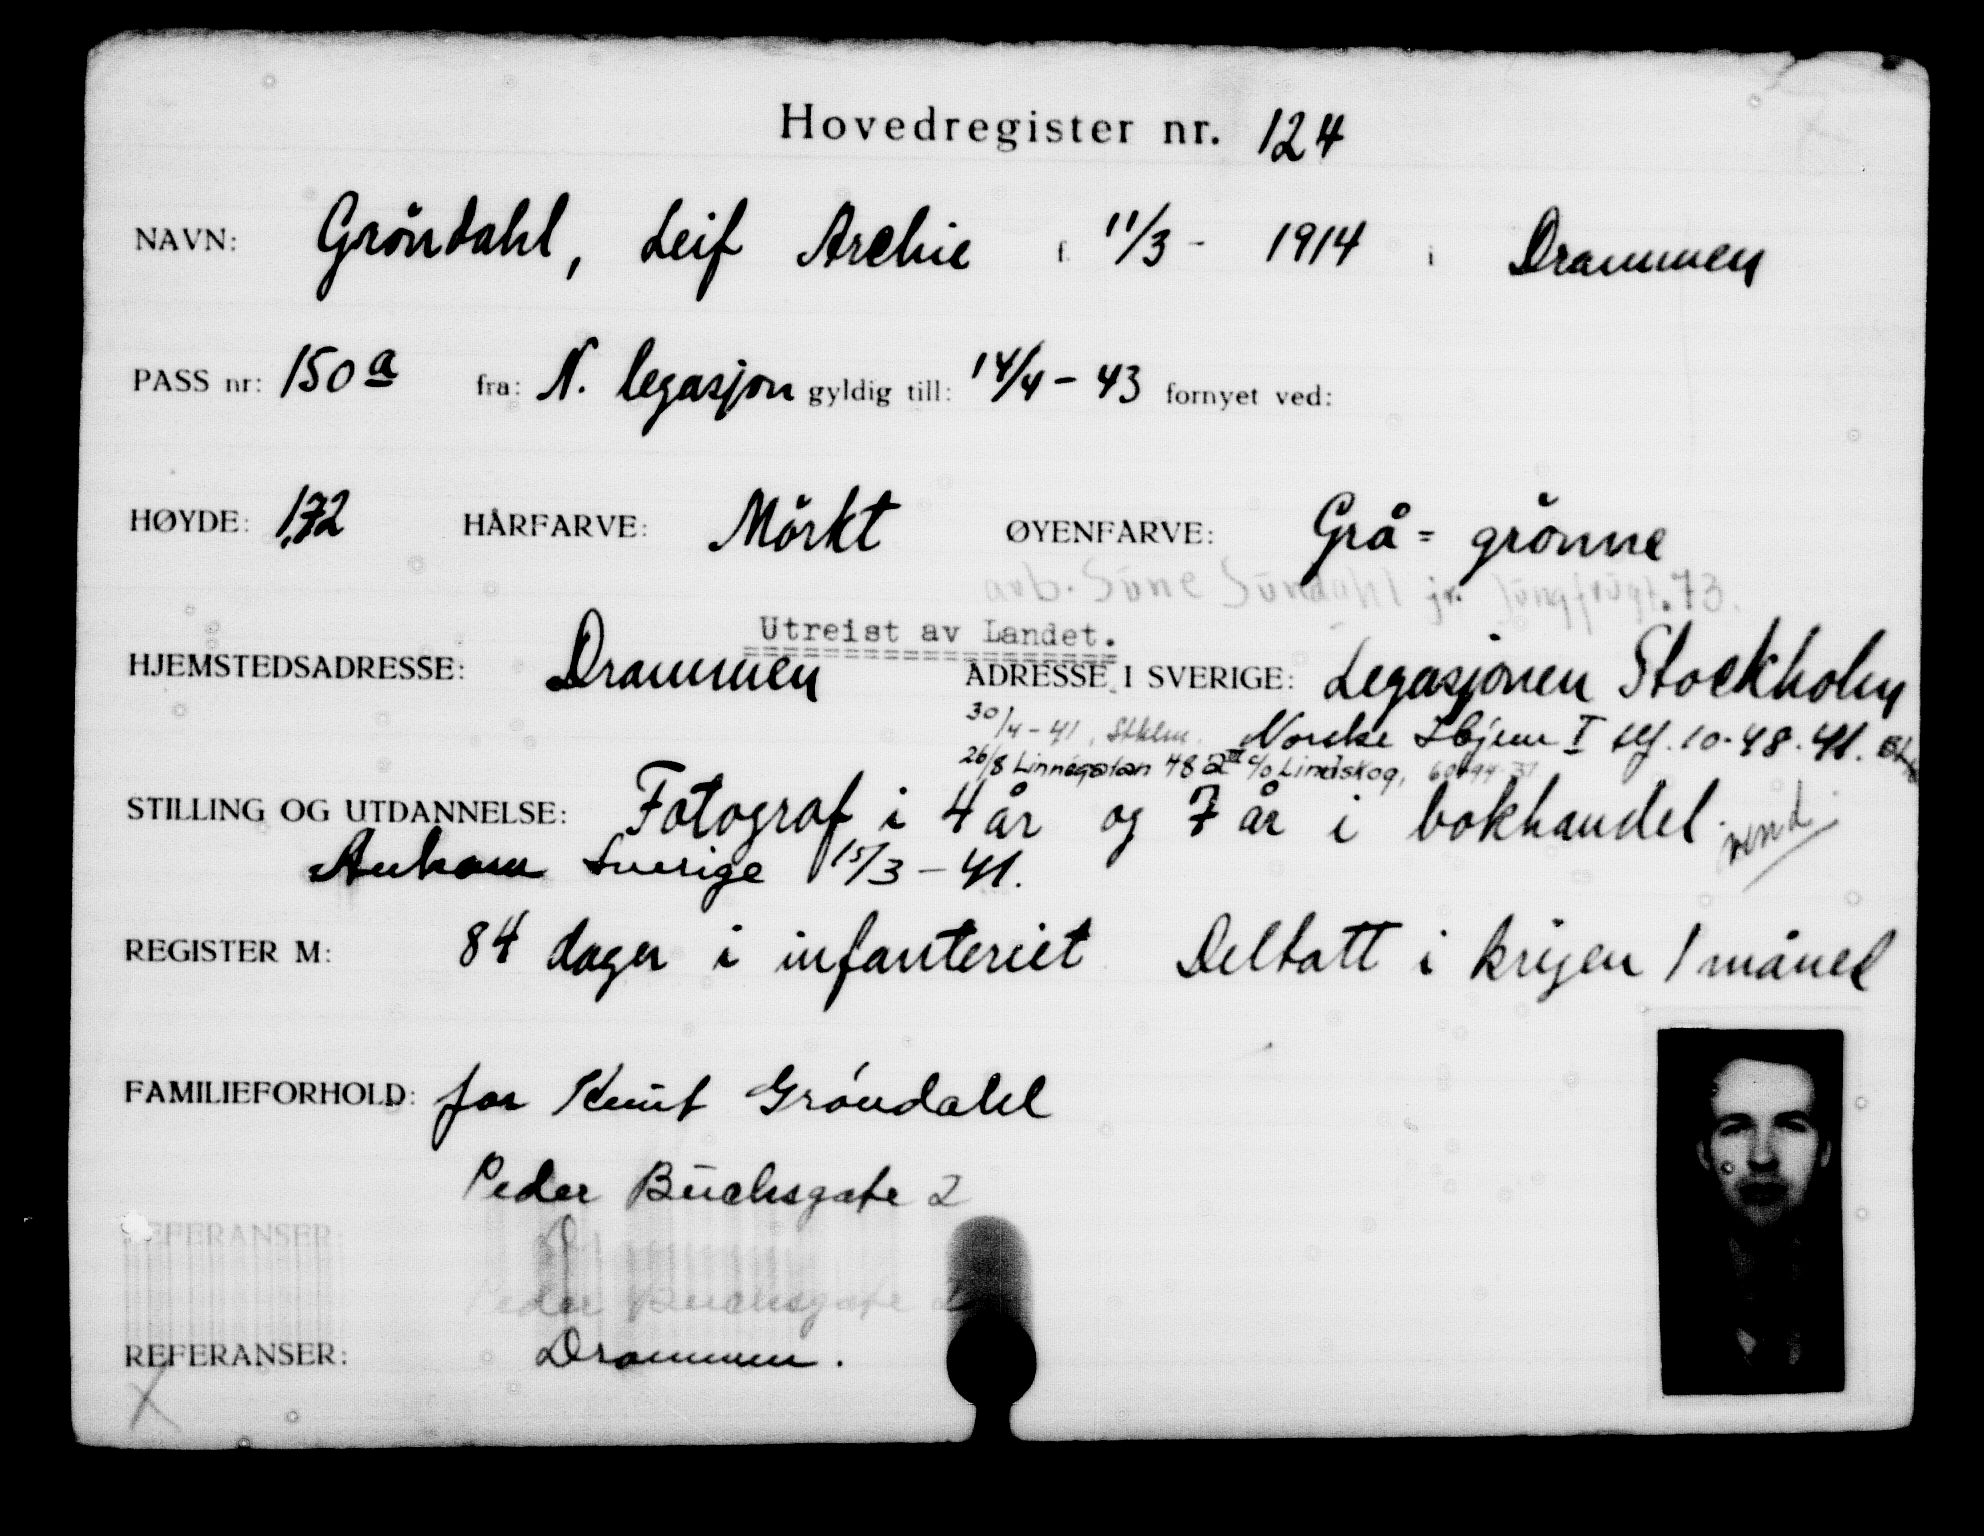 Hovedregister nr. 124
NAVN: Gröndahl, Leif Archie f. 11/3 - 1914 i Drammen
PASS nr: 150 a fra: N. legasjon gyldig till: 14/4 - 43 fornyet ved:
HØYDE: 1,72 HÅRFARVE: Mörkt ØYENFARVE: Grå = grönne
arb. Sune Sundahl jr. 73.
Utreist av Landet.
HJEMSTEDSADRESSE: Drammen ADRESSE I SVERIGE: Legasjonen Stockholm
30/4 - 41, Sthlm. Norske Hjem I tlf. 10-48-41.
26/8 Linnégatan 48 a III c/o Lindskog,
STILLING OG UTDANNELSE: Fotograf i 4 år og 7 år i bokhandel.
Ankom Sverige 15/3 - 41.
REGISTER M: 84 dager i infanteriet Deltatt i krigen 1 måned
FAMILIEFORHOLD: far Knut Gröndahl
Peder Buchsgate 2
REFERANSER:
Peder Buchsgate 2
REFERANSER: Drammen.